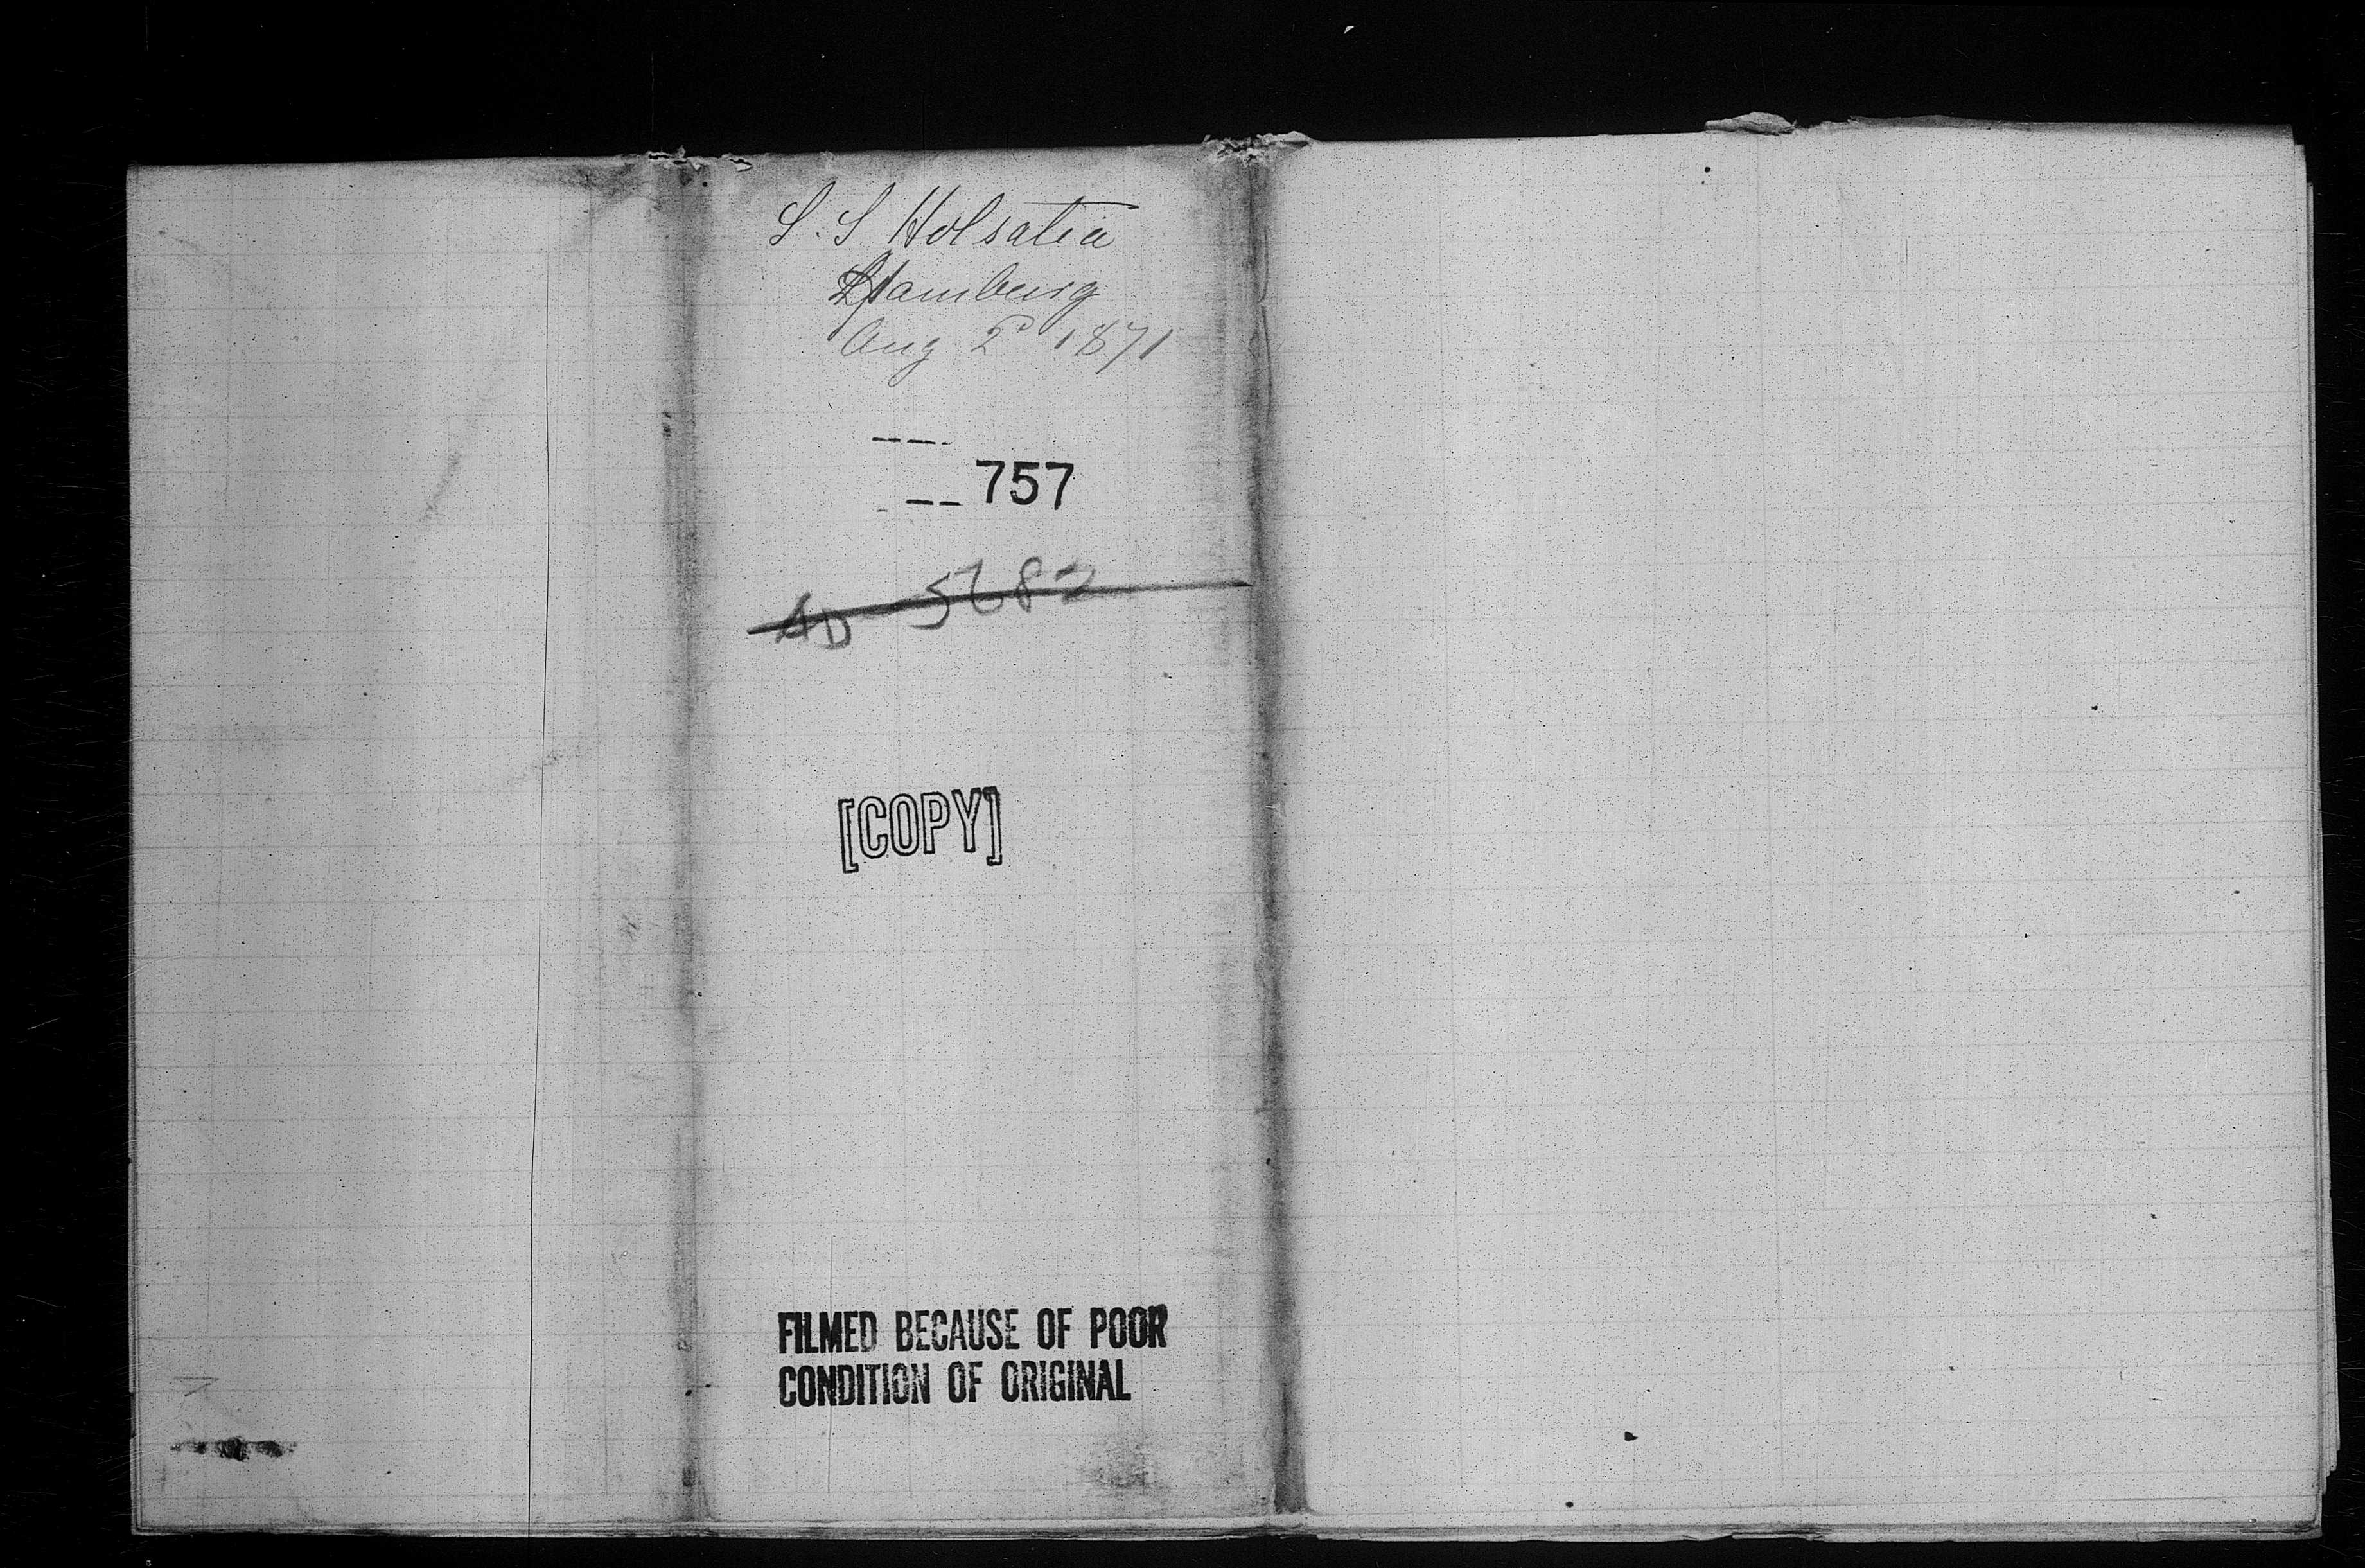 S. S Holsatia
Hamburg
Aug 2d 1871
757
AD - 5682
[COPY]
FILMED BECAUSE OF POOR
CONDITION OF ORIGINAL